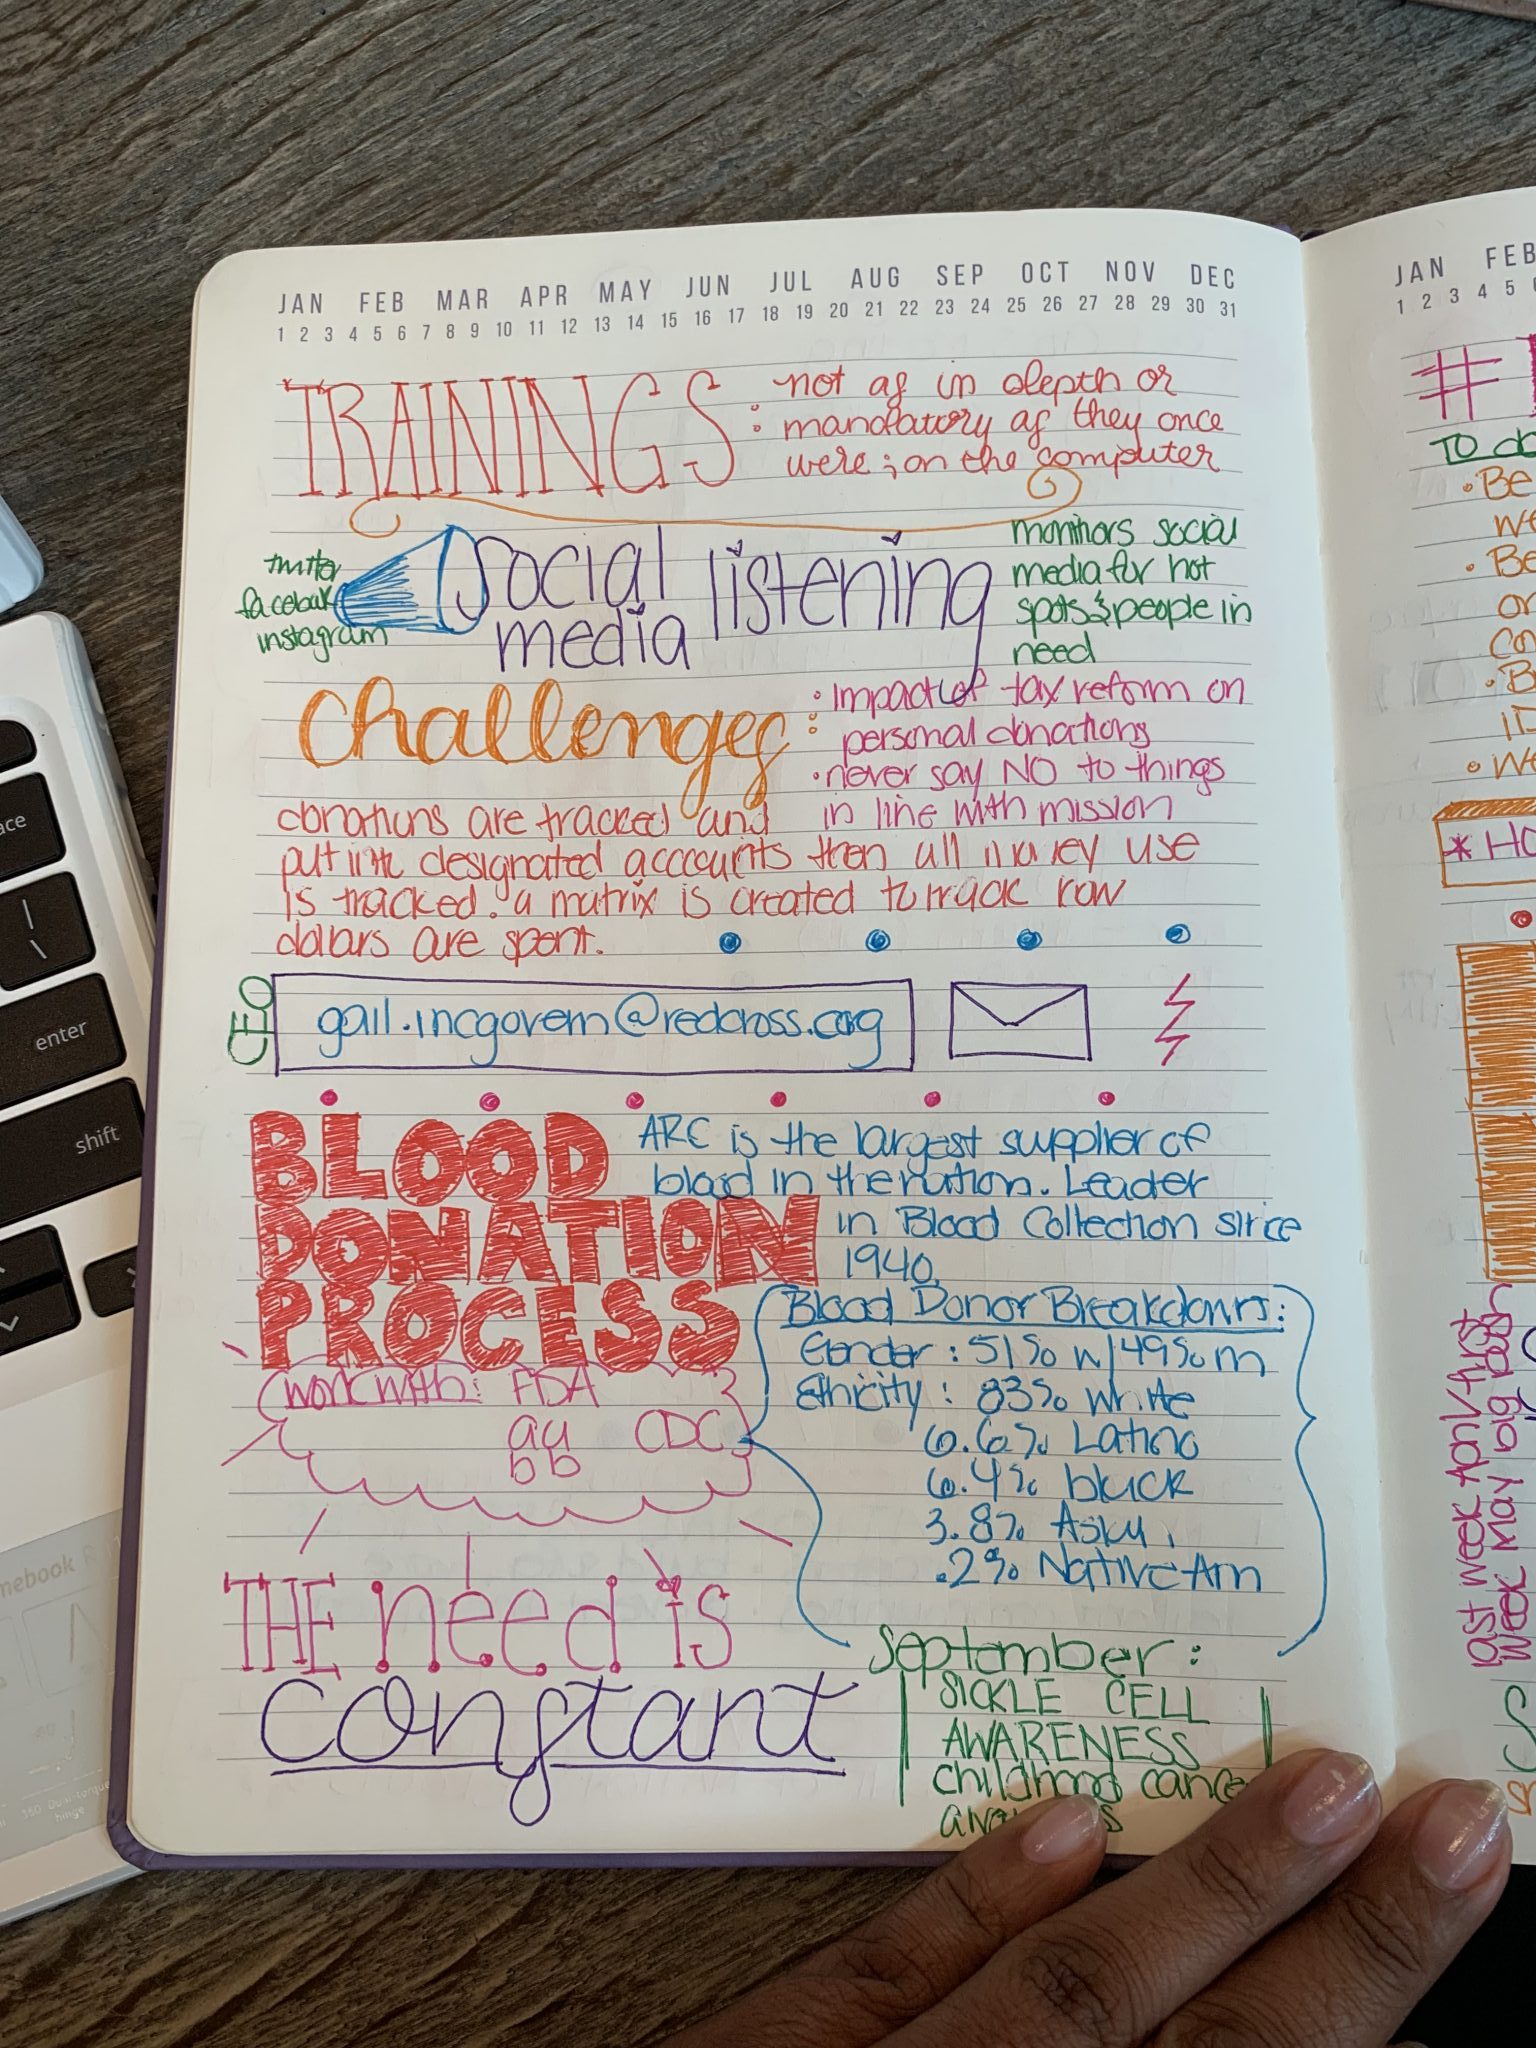 JAN FEB MAR APR MAY JUN JUL AUG SEP OCT NOV DEC
1 2 3 4 5 6 7 8 9 10 11 12 13 14 15 16 17 18 19 20 21 22 23 24 25 26 27 28 29 30 31
TRAININGS :
not as in depth or
mandatory as they once
were; on the computer
twitter
facebook
instagram
social
media
listening
monitors social
media for hot
spots & people in
need
challenges :
• impact of tax reform on
personal donations
• never say NO to things
in line with mission
donations are tracked and
put into designated acccounts then all money use
is tracked. a matrix is created to track how
dollars are spent.
CEO
gail.mcgovern@redcross.org
BLOOD
DONATION
PROCESS
ARC is the largest supplier of
blood in the nation. Leader
in Blood Collection since
1940.
Blood Donor Breakdown:
Gender: 51% w/49% m
Ethicity: 83% White
6.6% Latino
6.4% black
3.8% Asian
.2% Native Am
work with: FDA
aa CDC
bb
THE need is
constant
September:
SICKLE CELL
AWARENESS
childhood cancer
JAN FEB
1 2 3 4 5
#
TO do
• Be
we
• Be
or
co
• B
• we
* HO
last week April/first
week May big push
ace
|
\
enter
shift
360 Dual-torque
hinge